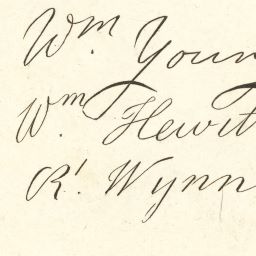 Wm. Youn
Wm. Hewit
Rt. Wynn